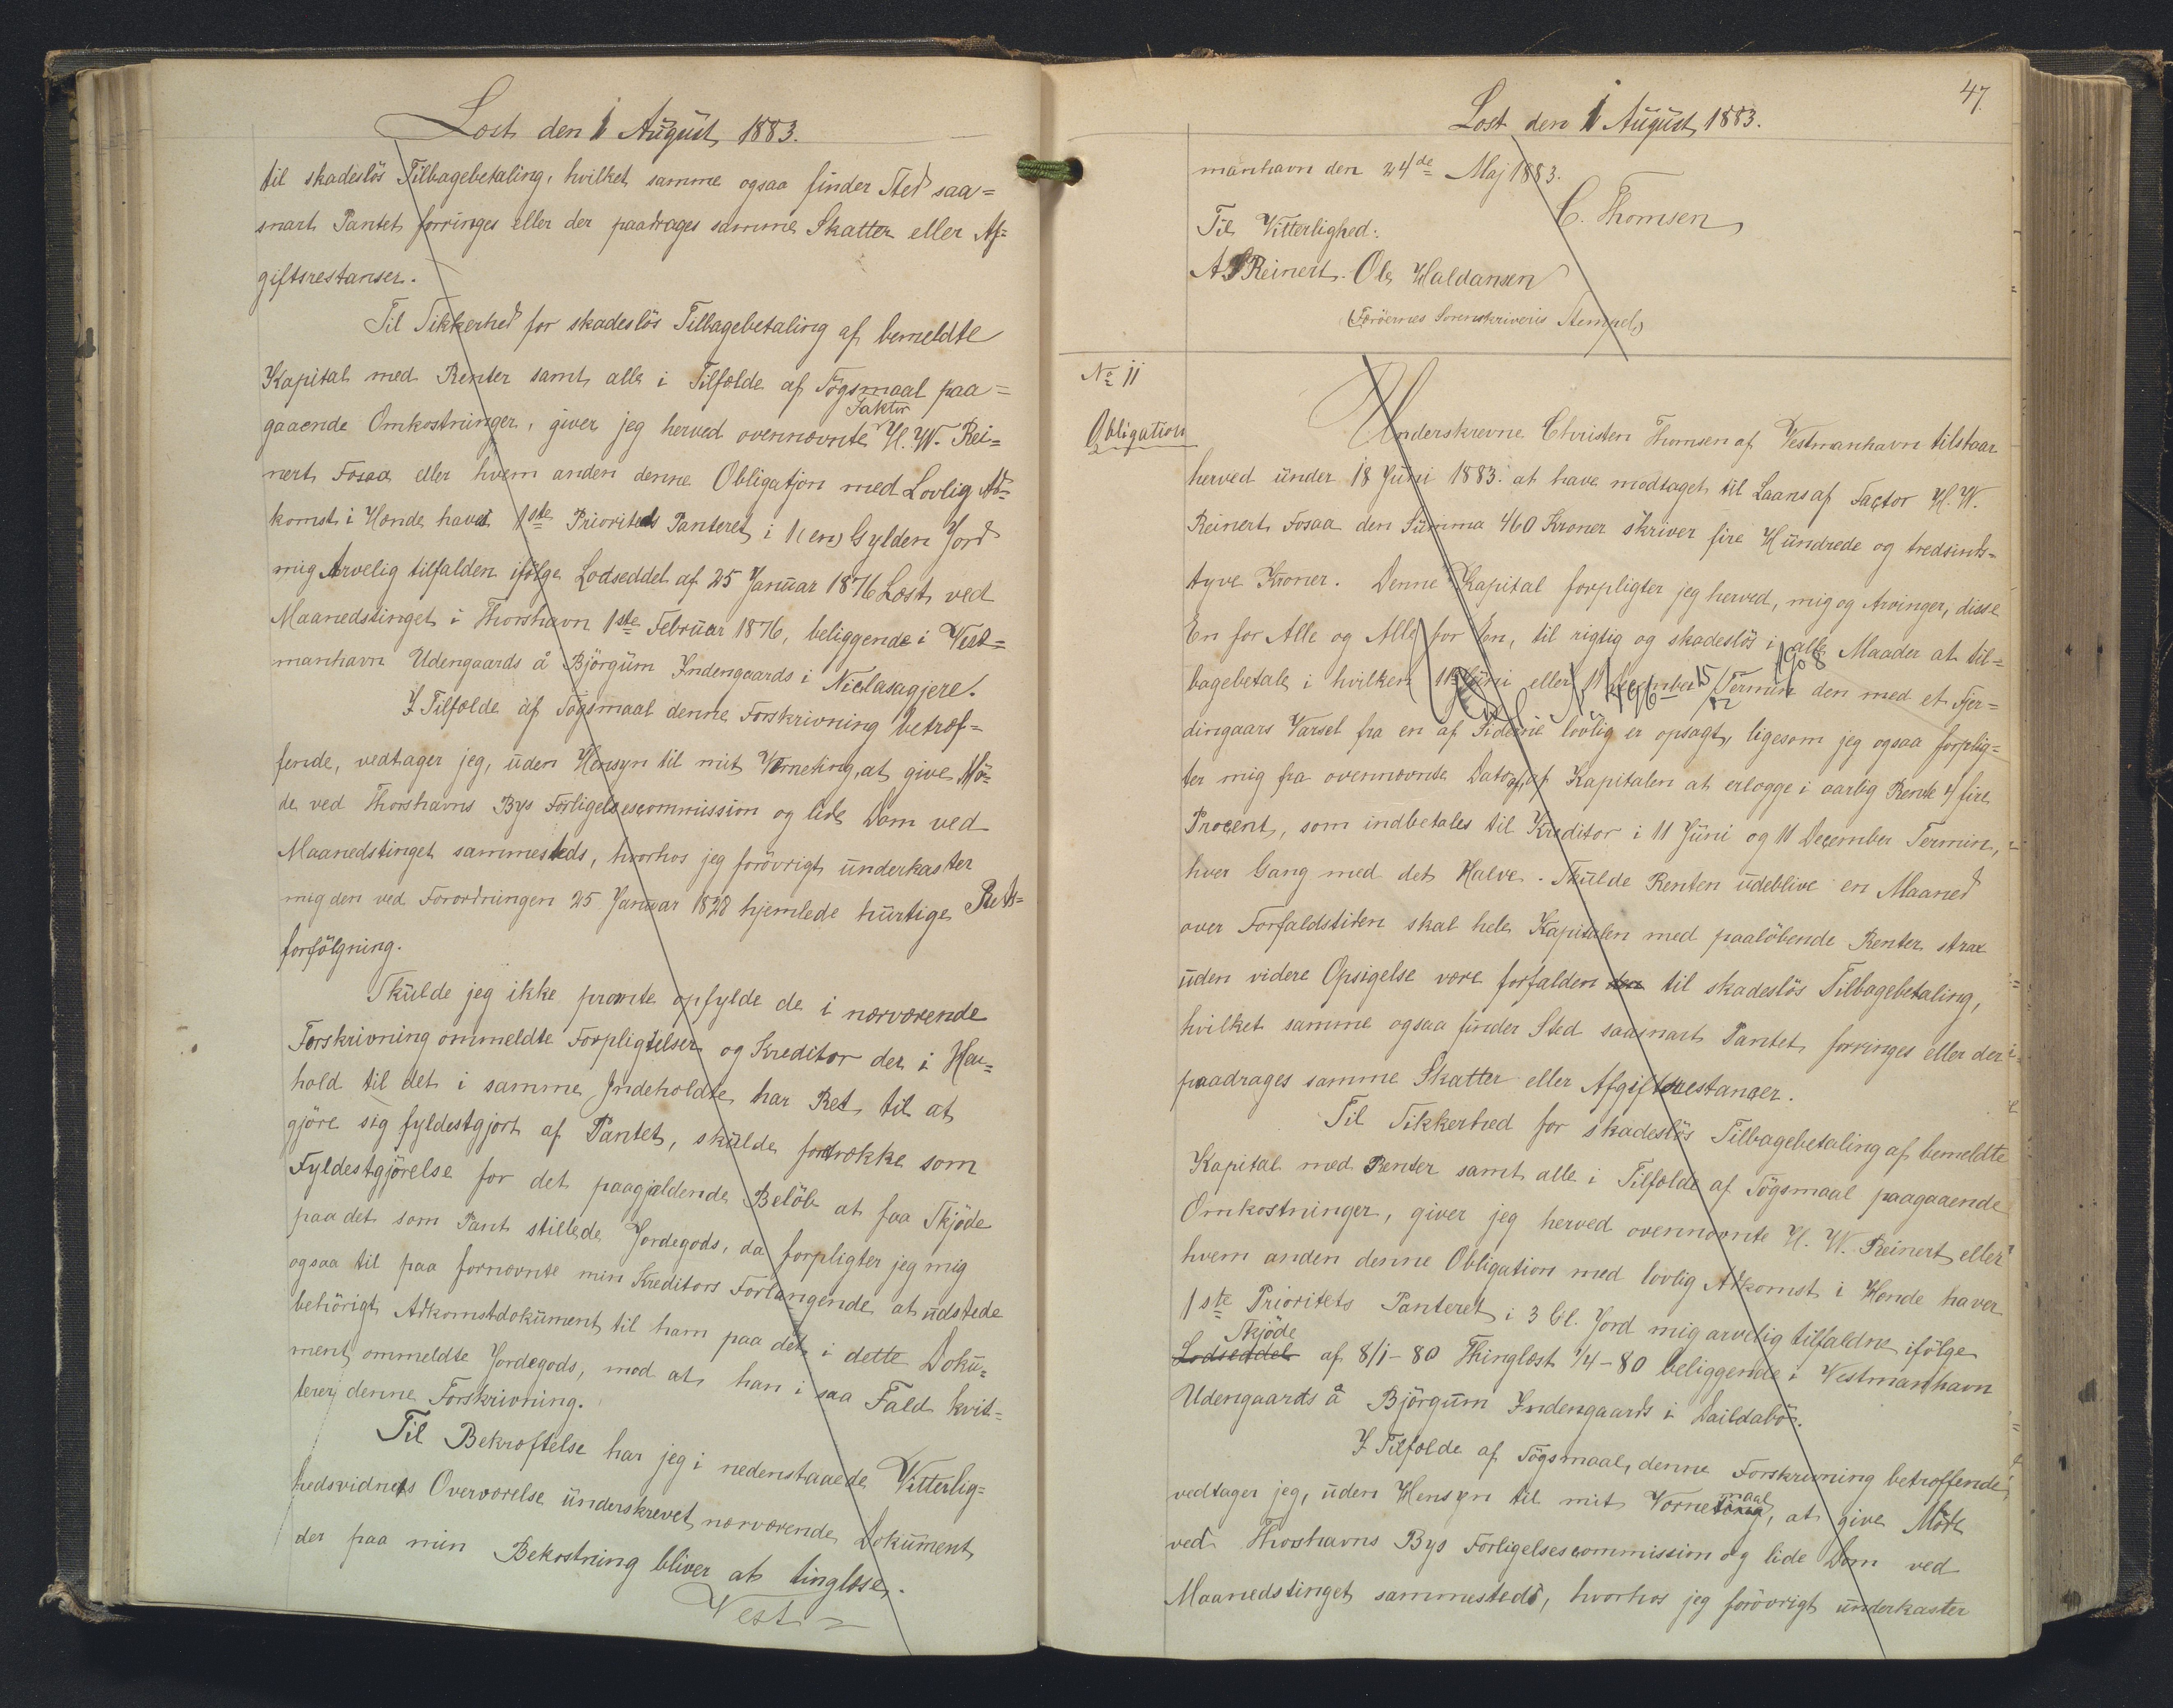 Læst den 1 August 1883.
til skadeslös Tilbagebetaling, hvilket samme ogsaa finder Sted saa=
snart Pantet forringes eller der paadrages samme Skatter eller Af=
giftsrestanser.
Til Sikkerhed for skadeslös Tilbagebetaling af bemeldte
Kapital med Renter samt alle i Tilfælde af Sögsmaal paa=
gaaende Omkostninger, giver jeg herved ovennævnte Faktor H. W. Rei=
nert Fosaa eller hvem anden denne Obligatjon med Lovlig Ad=
komst i Hænde haver 1ste Prioritets Panteret i 1 (en) Gylden Jord
mig Arvelig tilfalden ifölge Lodseddel af 25 Januar 1876 Læst ved
Maanedstinget i Thorshavn 1ste Februar 1876, beliggende i Vest=
manhavn Udengaards å Björgum Indengaards i Niclasagjere.
I Tilfælde af Sögsmaal denne Forskrivning betræf=
fende, vedtager jeg, uden Hensyn til mit Værneting, at give Mö=
de ved Thorshavns Bys Forligelsescommission og lide Dom ved
Maanedstinget sammesteds, hvorhos jeg forövrigt underkaster
mig den ved Forordningen 25 Januar 1828 hjemlede hurtige Rets=
forfölgning.
Skulde jeg ikke promte opfylde de i nærværende
Forskrivning ommeldte Forpligtelser og Kreditor der i Hen=
hold til det i samme Indeholdte har Ret til at
gjöre sig fyldestgjort af Pantet, skulde foretrække som
Fyldestgjörelse for det paagjældende Belöb at faa Skjöde
paa det som Pant stillede Jordegods, da forpligter jeg mig
ogsaa til paa fornævnte min Kreditors Forlangende at udstede
behörigt Adkomstdokument til ham paa det i dette Doku=
ment ommeldte Jordegods, mod at han i saa Fald kvit=
terer denne Forskrivning.
Til Bekræftelse har jeg i nedenstaaede Vitterlig=
hedsvidners Overværelse underskrevet nærværende Dokument
der paa min Bekostning bliver at tinglæse.
Vest=
47
Læst den 1 August 1883.
manhavn den 24de Maj 1883.
C. Thomsen
Til Vitterlighed:
A Reinert. Ole Haldansen
(Færöernes Sorenskriveris Stempel)
No 11
Obligation
Underskrevne Christen Thomsen af Vestmanhavn tilstaar
herved under 18 Juni 1883 at have modtaget til Laans af Factor H. W.
Reinert Fosaa den Summa 460 Kroner skriver fire Hundrede og tredsinds=
tyve Kroner. Denne Kapital forpligter jeg herved, mig og Arvinger, disse
En for Alle og Alle for En, til rigtig og skadeslös i alle Maader at til=
bagebetale i hvilken 11 Juni eller 11 December Termin den med et Fjer=
dingaars Varsel fra en af Siderne lovlig er opsagt, ligesom jeg ogsaa forplig=
ter mig fra ovennævnte Dato af, af Kapitalen at erlægge i aarlig Rente 4 fire
Procent, som indbetales til Kreditor i 11 Juni og 11 December Termin,
hver Gang med det Halve. Skulde Renten udeblive en Maaned
over Forfaldstiden skal hele Kapitalen med paalöbende Renter strax
uden videre Opsigelse være forfalden den til skadeslös Tilbagebetaling,
hvilket samme ogsaa finder Sted saasnart Pantet forringes eller der
paadrages samme Skatter eller Afgiftsrestancer.
Til Sikkerhed for skadeslös Tilbagebetaling af bemeldte
Kapital med Renter samt alle i Tilfælde af Sögsmaal paagaaende
Omkostninger, giver jeg herved ovennævnte H. W. Reinert eller
hvem anden denne Obligation med lovlig Adkomst i Hænde haver
1ste Prioritets Panteret i 3 Gl. Jord mig arvelig tilfaldne ifölge
Lodseddel Skjöde af 8/1-80 Thinglæst 1/4-80 beliggende i Vestmanhavn
Udengaards å Björgum Indengaards i Daildabö.
I Tilfælde af Sögsmaal, denne Forskrivning betræffende
vedtager jeg, uden Hensyn til mit Værneting, at give Möde
ved Thorshavns Bys Forligelsescommission og lide Dom ved
Maanedstinget sammesteds, hvorhos jeg forövrigt underkaster